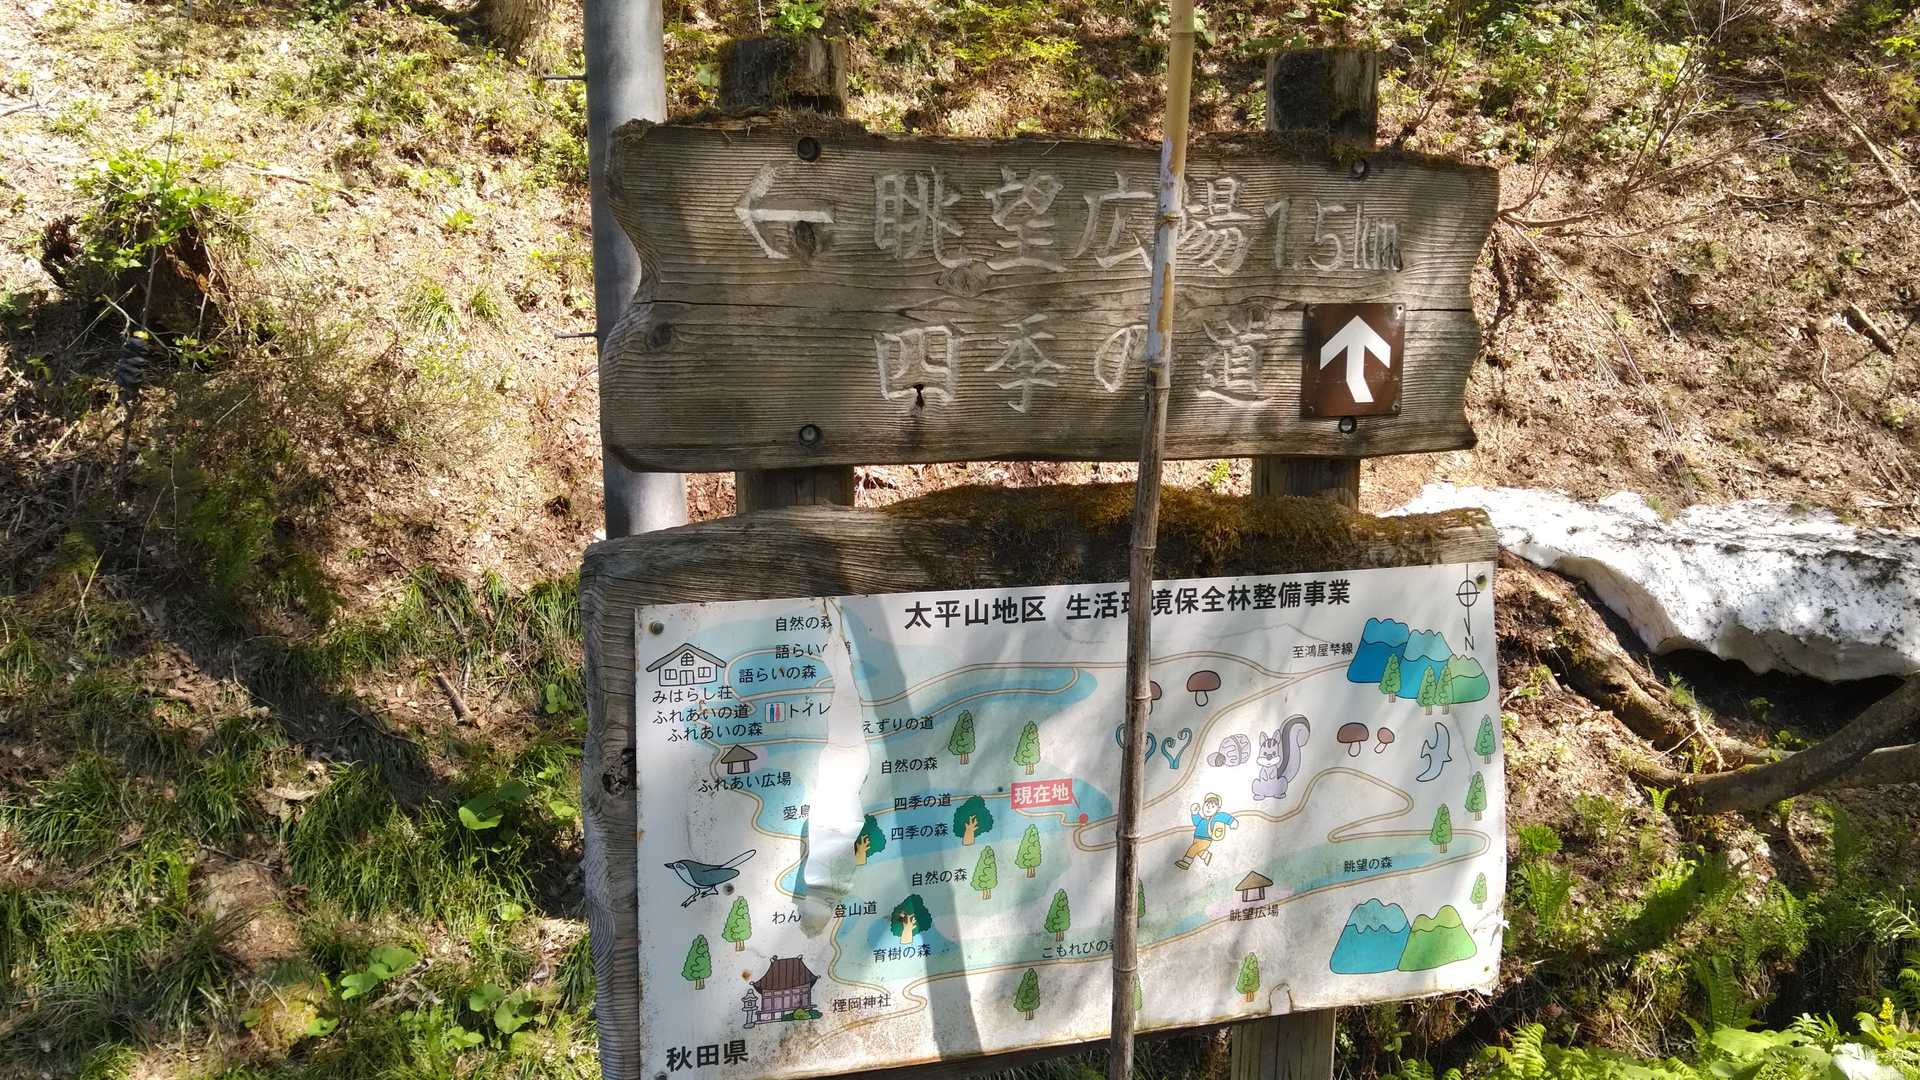 ← 眺望広場 1.5km
四季の道
太平山地区 生活環境保全林整備事業
自然の森
語らい 道
語らいの森
みはらし荘
ふれあいの道
トイレ
ふれあいの森
えずりの道
ふれあい広場
自然の森
現在地
四季の道
愛鳥
四季の森
自然の森
わん 登山道
育樹の森
こもれびの森
眺望の森
眺望広場
至鴻屋梺線
N
煙岡神社
秋田県